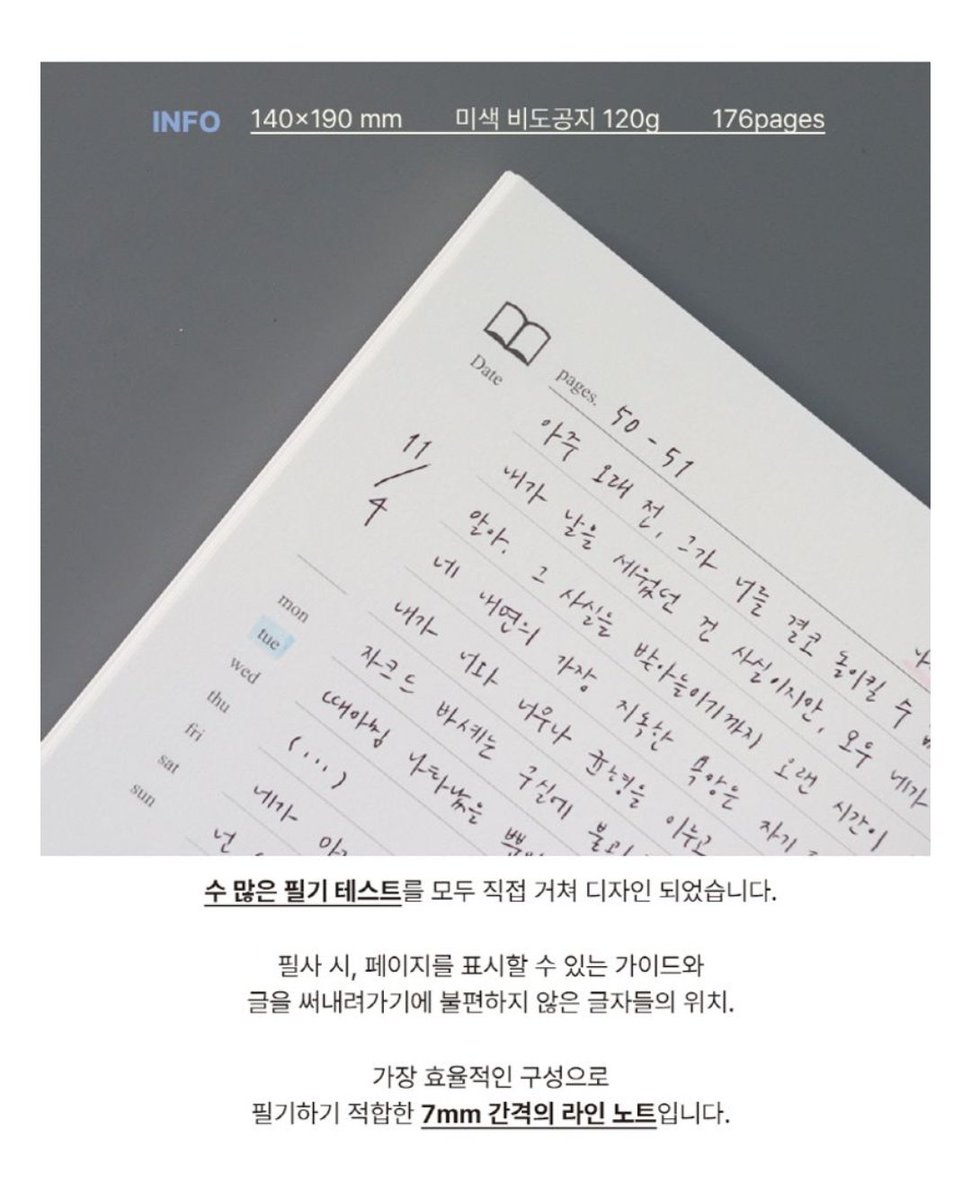 INFO 140×190 mm 미색 비도공지 120g 176pages
Date pages. 50-51
11/4
아주 오래 전, 그가 너를 결코 돌이킬 수
내가 날을 세웠던 건 사실이지만, 오우 네가
알아. 그 사실을 받아들이기까지 오랜 시간이
네 내면의 가장 지독한 목앙은 자기
내가 너와 너우나 균형을 이누고
자크드 바셰는 구실에 불과
때아침 나타났을 뿐
(...)
네가
넌
mon
tue
wed
thu
fri
sat
sun
수 많은 필기 테스트를 모두 직접 거쳐 디자인 되었습니다.
필사 시, 페이지를 표시할 수 있는 가이드와
글을 써내려가기에 불편하지 않은 글자들의 위치.
가장 효율적인 구성으로
필기하기 적합한 7mm 간격의 라인 노트입니다.